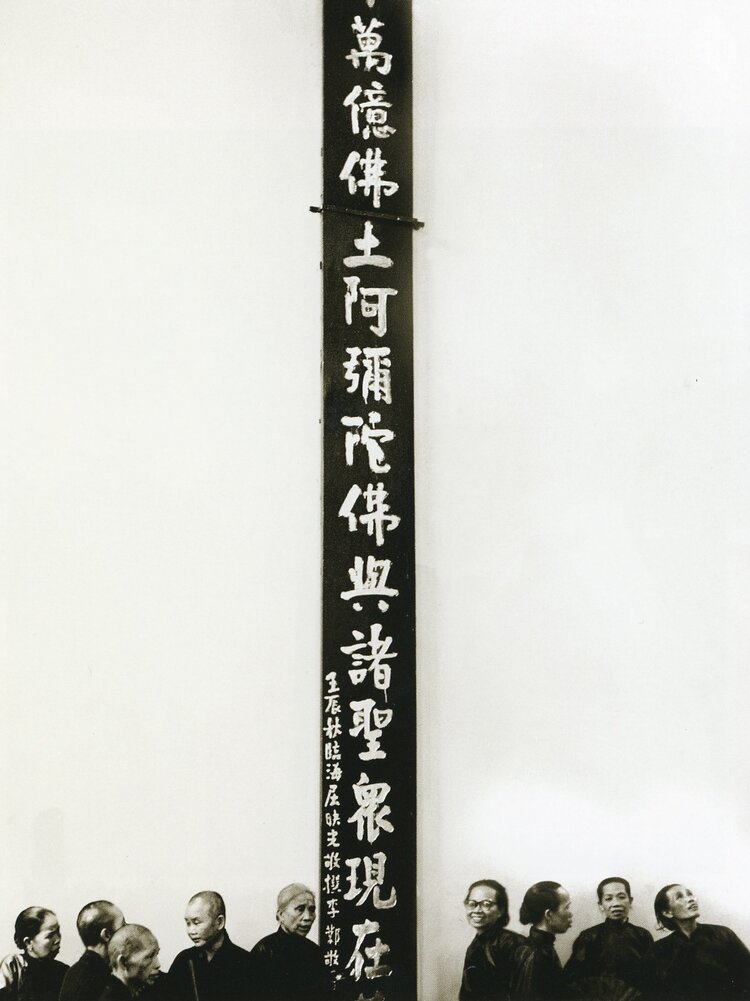 萬億佛土阿彌陀佛與諸聖衆現在
壬辰秋臨海屈映光敬撰李鄴敬